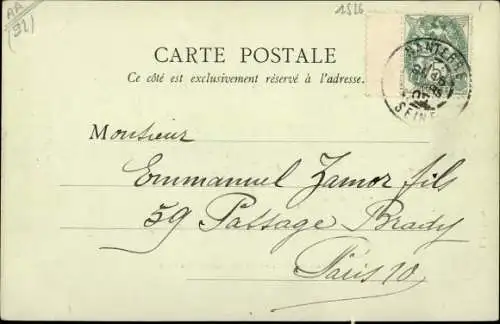 AA
(92)
1526
CARTE POSTALE
Ce côté est exclusivement réservé à l'adresse.
NANTERRE
SEINE
Monsieur
Emmanuel Zamor fils
59 Passage Brady
Paris 10